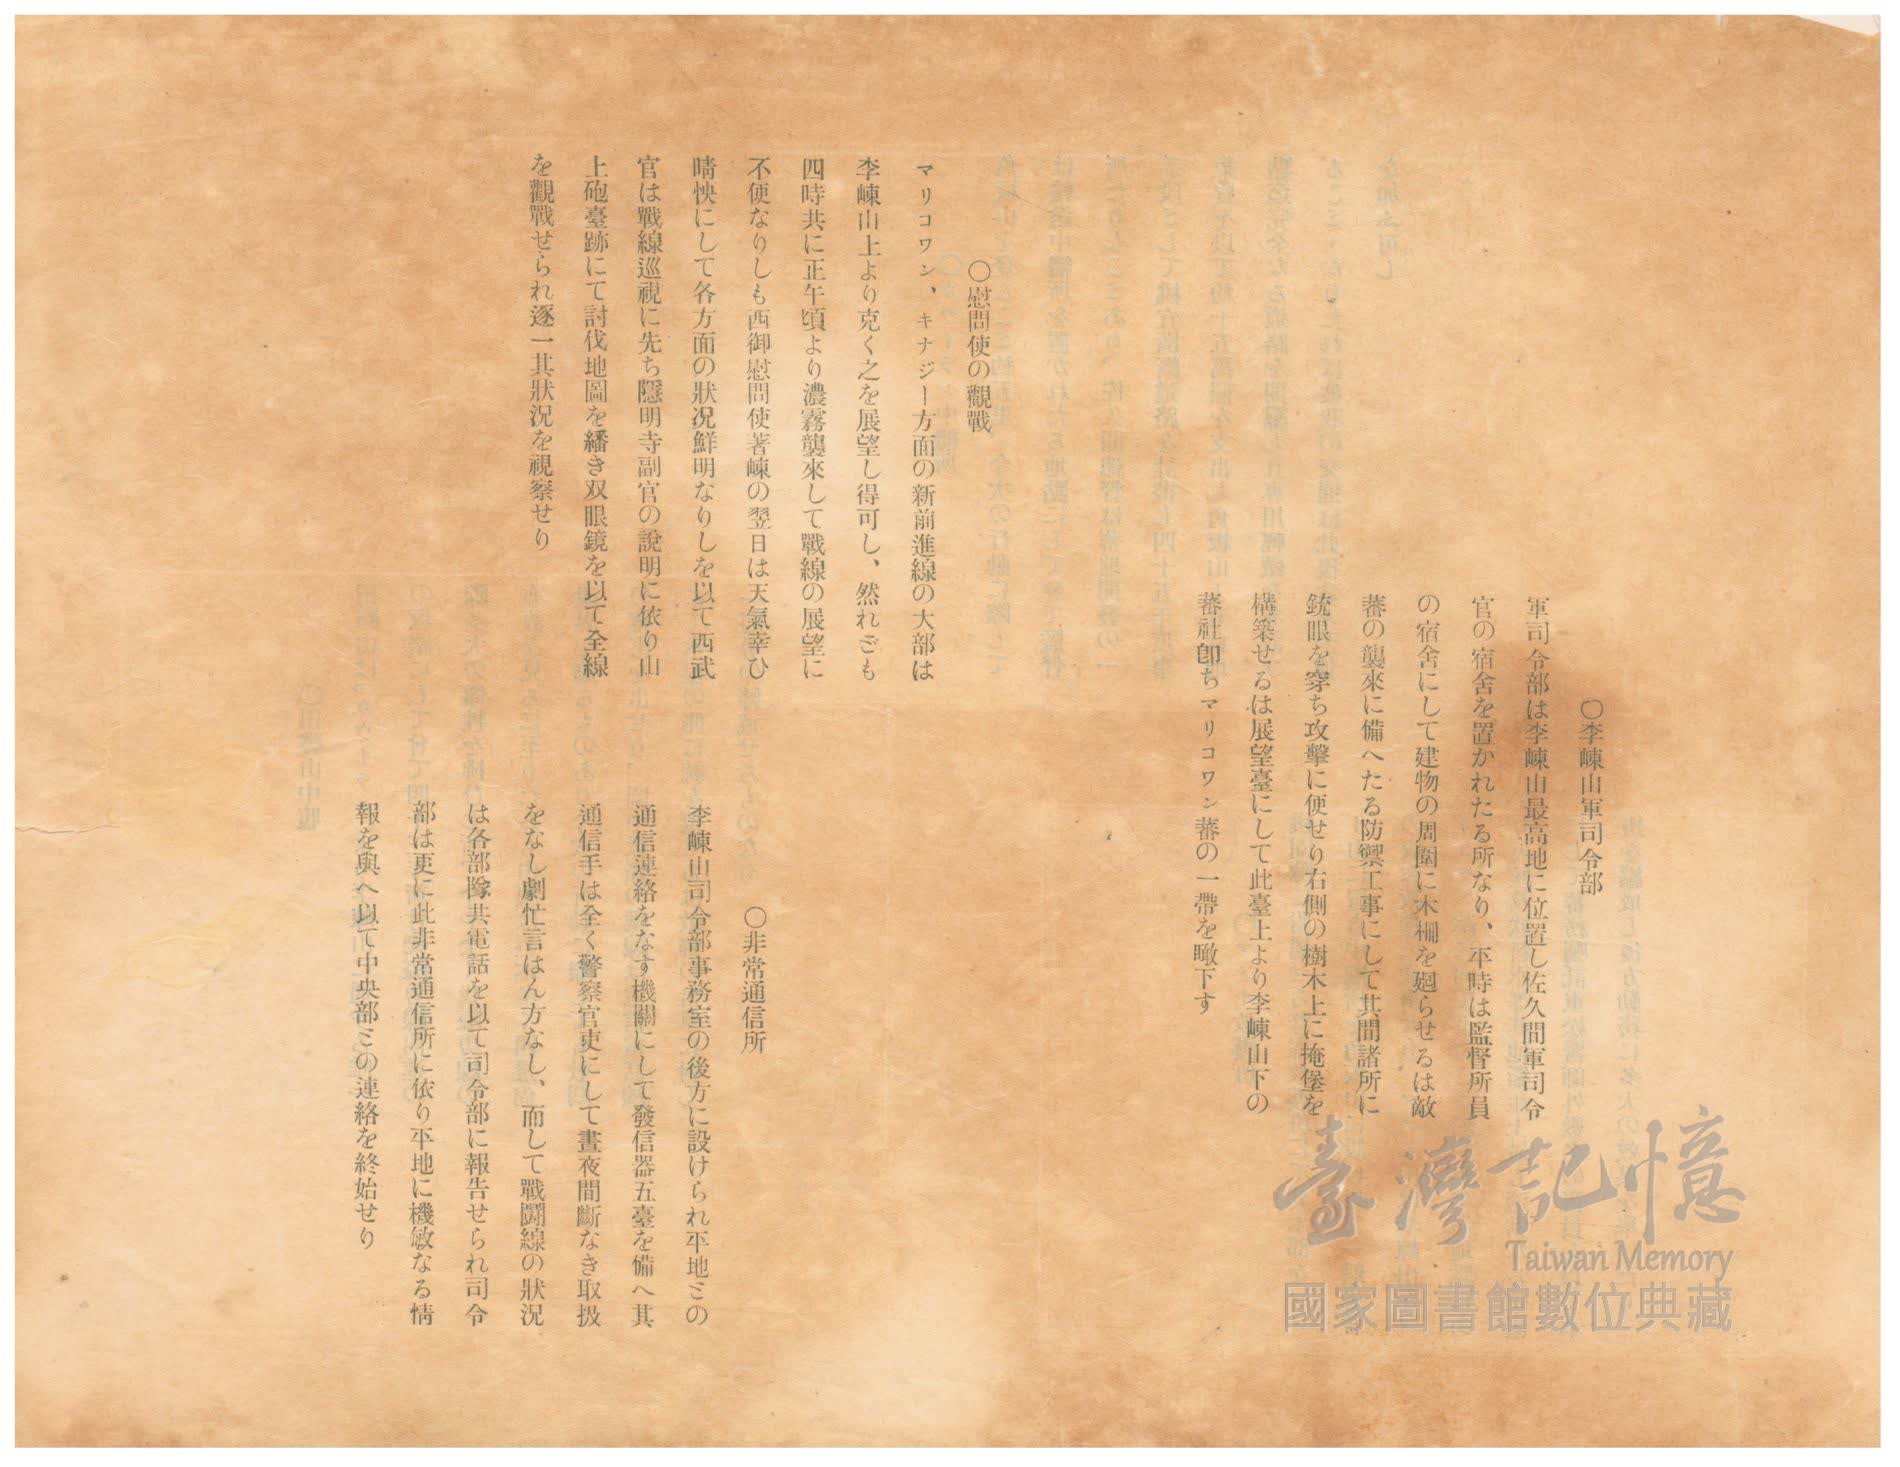 〇李崠山軍司令部
軍司令部は李崠山最高地に位置し佐久間軍司令
官の宿舍を置かれたる所なり、平時は監督所員
の宿舍にして建物の周圍に木柵を廻らせるは敵
蕃の襲來に備へたる防禦工事にして其間諸所に
銃眼を穿ち攻擊に便せり右側の樹木上に掩堡を
構築せるは展望臺にして此臺上より李崠山下の
蕃社卽ちマリコワン蕃の一帶を瞰下す
〇慰問使の觀戰
マリコワン、キナジー方面の新前進線の大部は
李崠山上より克く之を展望し得可し、然れども
四時共に正午頃より濃霧襲來して戰線の展望に
不便なりしも西御慰問使著崠の翌日は天氣幸ひ
晴快にして各方面の狀况鮮明なりしを以て西武
官は戰線巡視に先ち隱明寺副官の說明に依り山
上砲臺跡にて討伐地圖を繙き双眼鏡を以て全線
を觀戰せられ逐一其狀況を視察せり
〇非常通信所
李崠山司令部事務室の後方に設けられ平地ミの
通信連絡をなす機關にして發信器五臺を備へ其
通信手は全く警察官吏にして晝夜間斷なき取扱
をなし劇忙言はん方なし、而して戰鬪線の狀況
は各部隊共電話を以て司令部に報告せられ司令
部は更に此非常通信所に依り平地に機敏なる情
報を與へ以て中央部ミの連絡を終始せり
臺灣記憶
Taiwan Memory
國家圖書館數位典藏